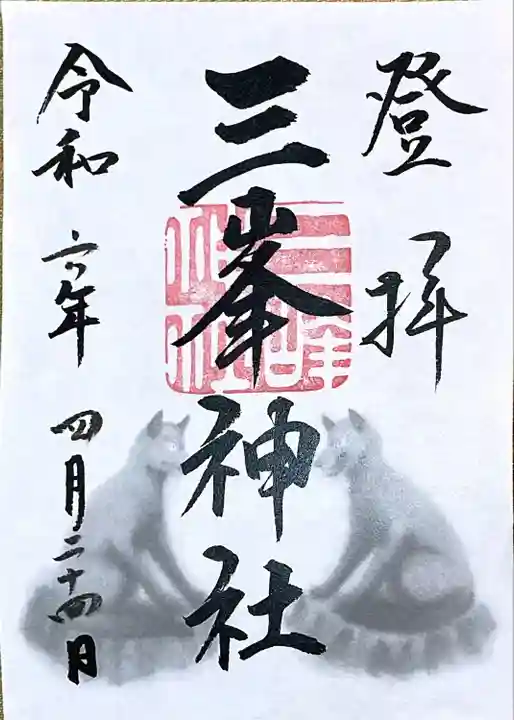 登拝
三峯神社
令和六年四月二十四日